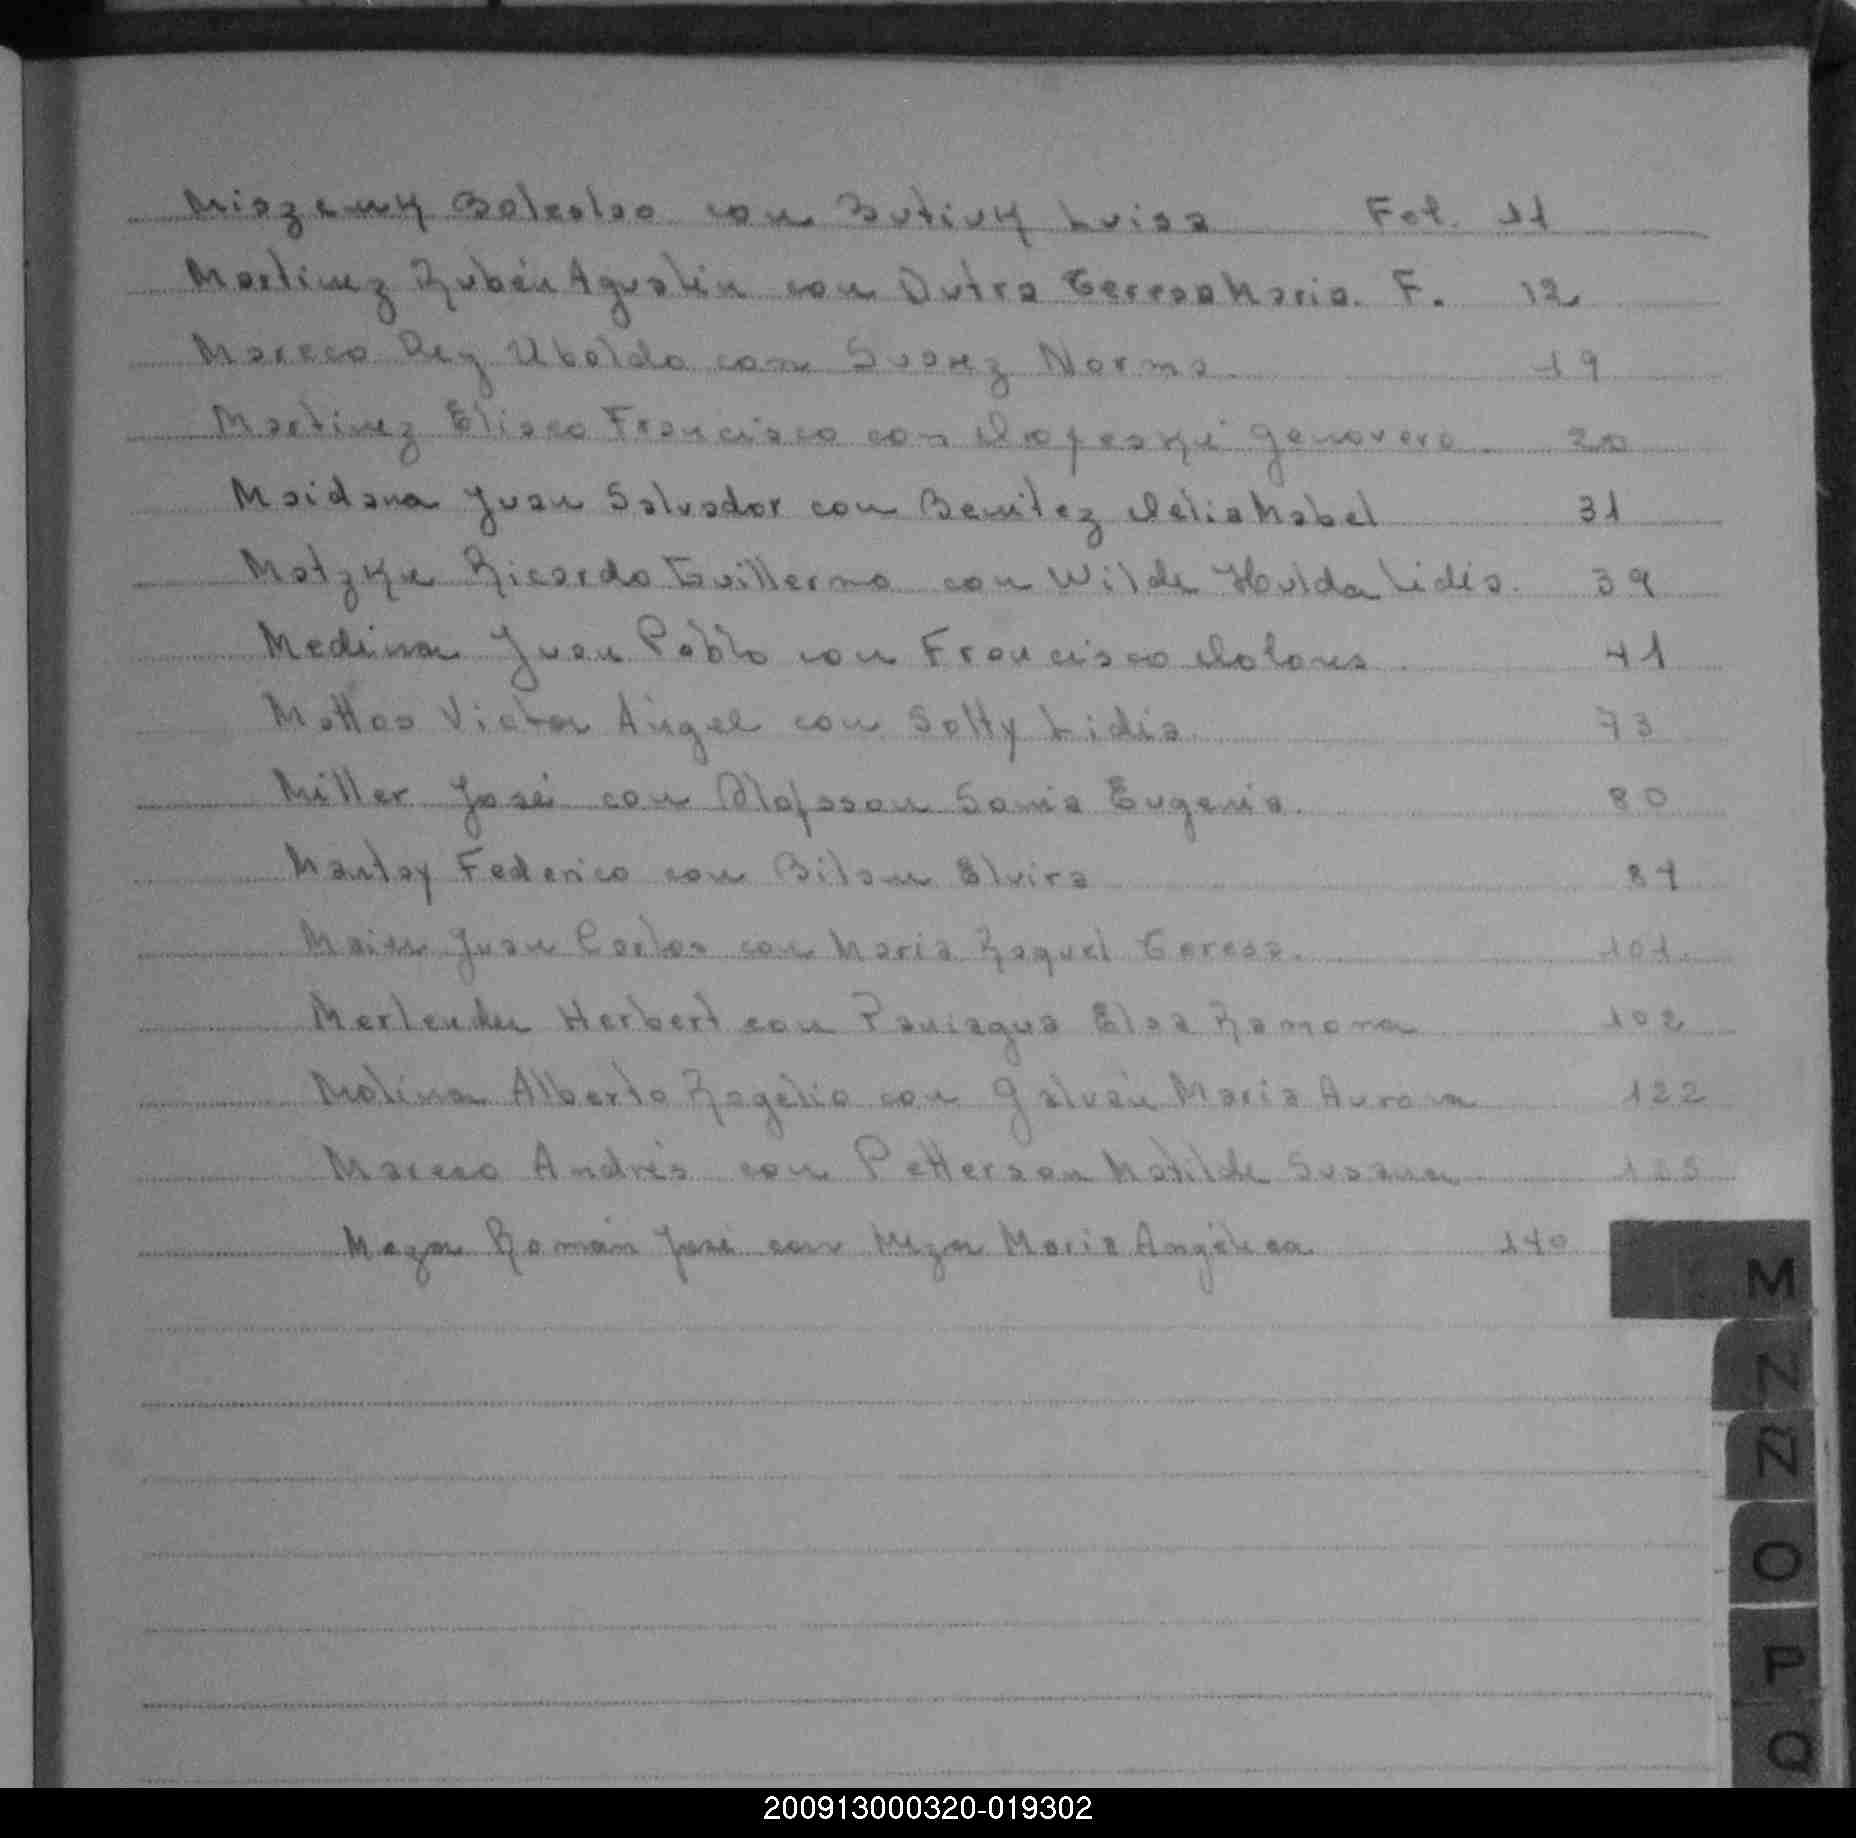 Miszenuk Boleslao con Butiuk Luisa Fol. 11
Martinez Rubén Agustin con Dutra Teresa Maria. F. 12
Mareco Rey Ubaldo con Suarez Norma. 19
Martinez Eliseo Francisco con Genovera 20
Maidana Juan Salvador con Benitez Delia Mabel 31
Motzke Ricardo Guillermo con Wilde Hulda Lidia. 39
Medina Juan Pablo con Francisco Dolores 41
Mattos Victor Angel con Sotty Lidia 73
Miller José con Olofsson Sonia Eugenia. 80
Federico con Elvira
Juan Carlos con Maria Raquel Teresa. 101
Herbert con Paniagua Elsa Ramona 102
Molina Alberto Rogelio con Galván Maria Aurora 122
Mareco Andrés con Petterson Matilde Susana
Meza Román José con Meza Maria Angélica 140
M
N
Ñ
O
P
Q
200913000320-019302